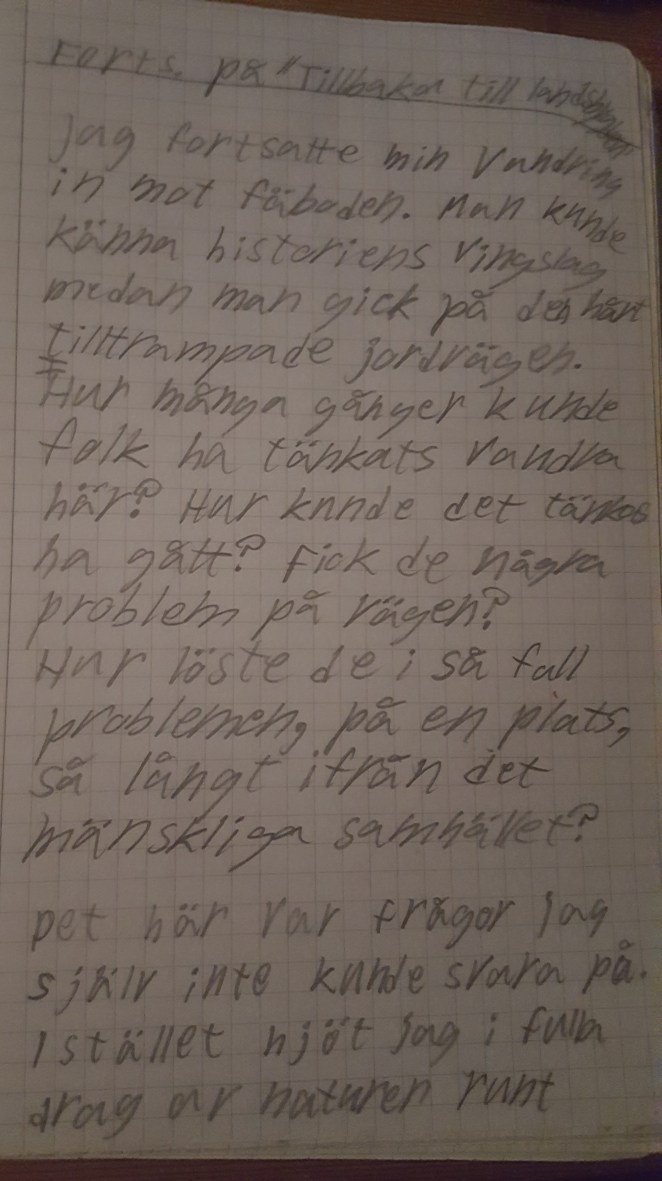 Forts. på "Tillbaka till
Jag fortsatte min vandring
in mot fäboden. Man kunde
känna historiens vingslag
medan man gick på den hårt
tilltrampade jordvägen.
Hur många gånger kunde
folk ha tänkats vandra
här? Hur kunde det tänkas
ha gått? Fick de några
problem på vägen?
Hur löste de i så fall
problemen, på en plats,
så långt ifrån det
mänskliga samhället?
Det här var frågor jag
själv inte kunde svara på.
I stället njöt jag i fulla
drag av naturen runt